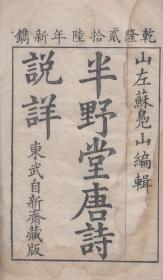 乾隆貳拾陸年新鐫
山左蘇堯山編輯
半野堂唐詩
說詳
東武自新齋藏版